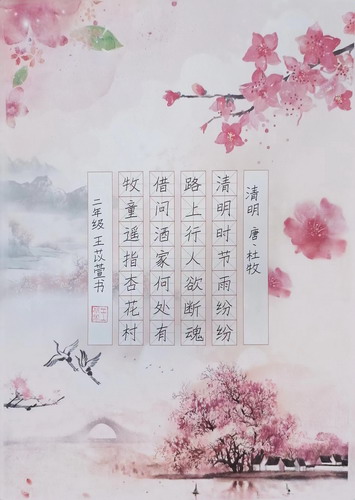 清明 唐·杜牧
清明时节雨纷纷
路上行人欲断魂
借问酒家何处有
牧童遥指杏花村
二年级 王苡萱书